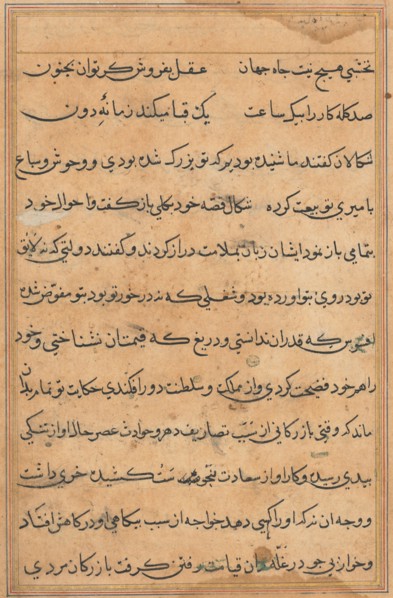 نخشبی هیچ نیست جاه جهان عقل بفروش کر توان بجنون
صد کله کار را بیک ساعت یک قبا میکند زمانهٔ دون
شکالان کفتند ما شنیده بودیم که تو بزرک شده بودی و وحوش و سباع
با میری تو بیعت کرده شکال قصه خود بکلی باز کفت و احوال خود
بتمامی باز نمود ایشان زبان بملامت دراز کردند و کفتند دولتی که نه لایق
تو بود روی بتو آورده بود و شغلی که نه در خور تو بود بتو مفوض شده
افسوس که قدر آن ندانستی و دریغ که قیمت آن نشناختی و خود
را هم خود فضیحت کردی و از مملکت و سلطنت دور افکندی حکایت تو تمام بدان
ماند که وقتی بازرکانی از سبب تصاریف دهر و حوادث عصر حال او از تنکی
ببدی رسید و کار او از سعادت کشید خری داشت
و وجه آن نه که او را کهی دهد خواجه از سبب بیکاهی او در کاهش افتاد
و خر از بی جو در غله دان قیامت رفتن کرفت بازرکان مردی